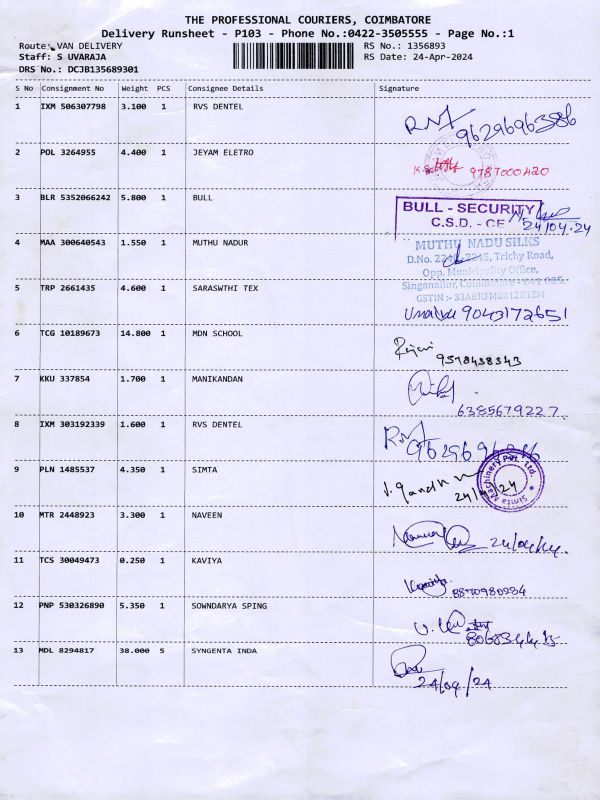 THE PROFESSIONAL COURIERS, COIMBATORE
Delivery Runsheet - P103 - Phone No.:0422-3505555 - Page No.:1
Route: VAN DELIVERY RS No.: 1356893
Staff: S UVARAJA RS Date: 24-Apr-2024
DRS No.: DCJB135689301
S No Consignment No Weight PCS Consignee Details Signature
1 IXM 506307798 3.100 1 RVS DENTEL
9629696386
2 POL 3264955 4.400 1 JEYAM ELETRO
9787000420
3 BLR 5352066242 5.800 1 BULL
BULL - SECURITY
C.S.D. - CE
24/04.24
4 MAA 300640543 1.550 1 MUTHU NADUR
MUTHU NADU SILKS
Trichy Road,
Opp. Municipality Office,
Singanallur,
5 TRP 2661435 4.600 1 SARASWTHI TEX
GSTIN :-
9043172651
6 TCG 10189673 14.800 1 MDN SCHOOL
9578438343
7 KKU 337854 1.700 1 MANIKANDAN
6385679227
8 IXM 303192339 1.600 1 RVS DENTEL
9 PLN 1485537 4.350 1 SIMTA
Simta Machinery Pvt. Ltd.
10 MTR 2448923 3.300 1 NAVEEN
11 TCS 30049473 0.250 1 KAVIYA
8870980234
12 PNP 530326890 5.350 1 SOWNDARYA SPING
13 MDL 8294817 38.000 5 SYNGENTA INDA